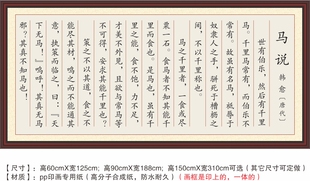 马说
韩愈（唐代）
世有伯乐，然后有千里
马。千里马常有，而伯乐不
常有。故虽有名马，祗辱于
奴隶人之手，骈死于槽枥之
间，不以千里称也。
马之千里者，一食或尽
粟一石。食马者不知其能千
里而食也。是马也，虽有千
里之能，食不饱，力不足，
才美不外见，且欲与常马等
不可得，安求其能千里也？
策之不以其道，食之不
能尽其材，鸣之而不能通其
意，执策而临之，曰：“天
下无马！”呜呼！其真无马
邪？其真不知马也！
【尺寸】：高60cmX宽125cm；高90cmX宽188cm；高150cmX宽310cm可选（其它尺寸可定做）
【材质】：pp印画专用纸（高分子合成纸，防水耐久）（画框是印上的，一体的）